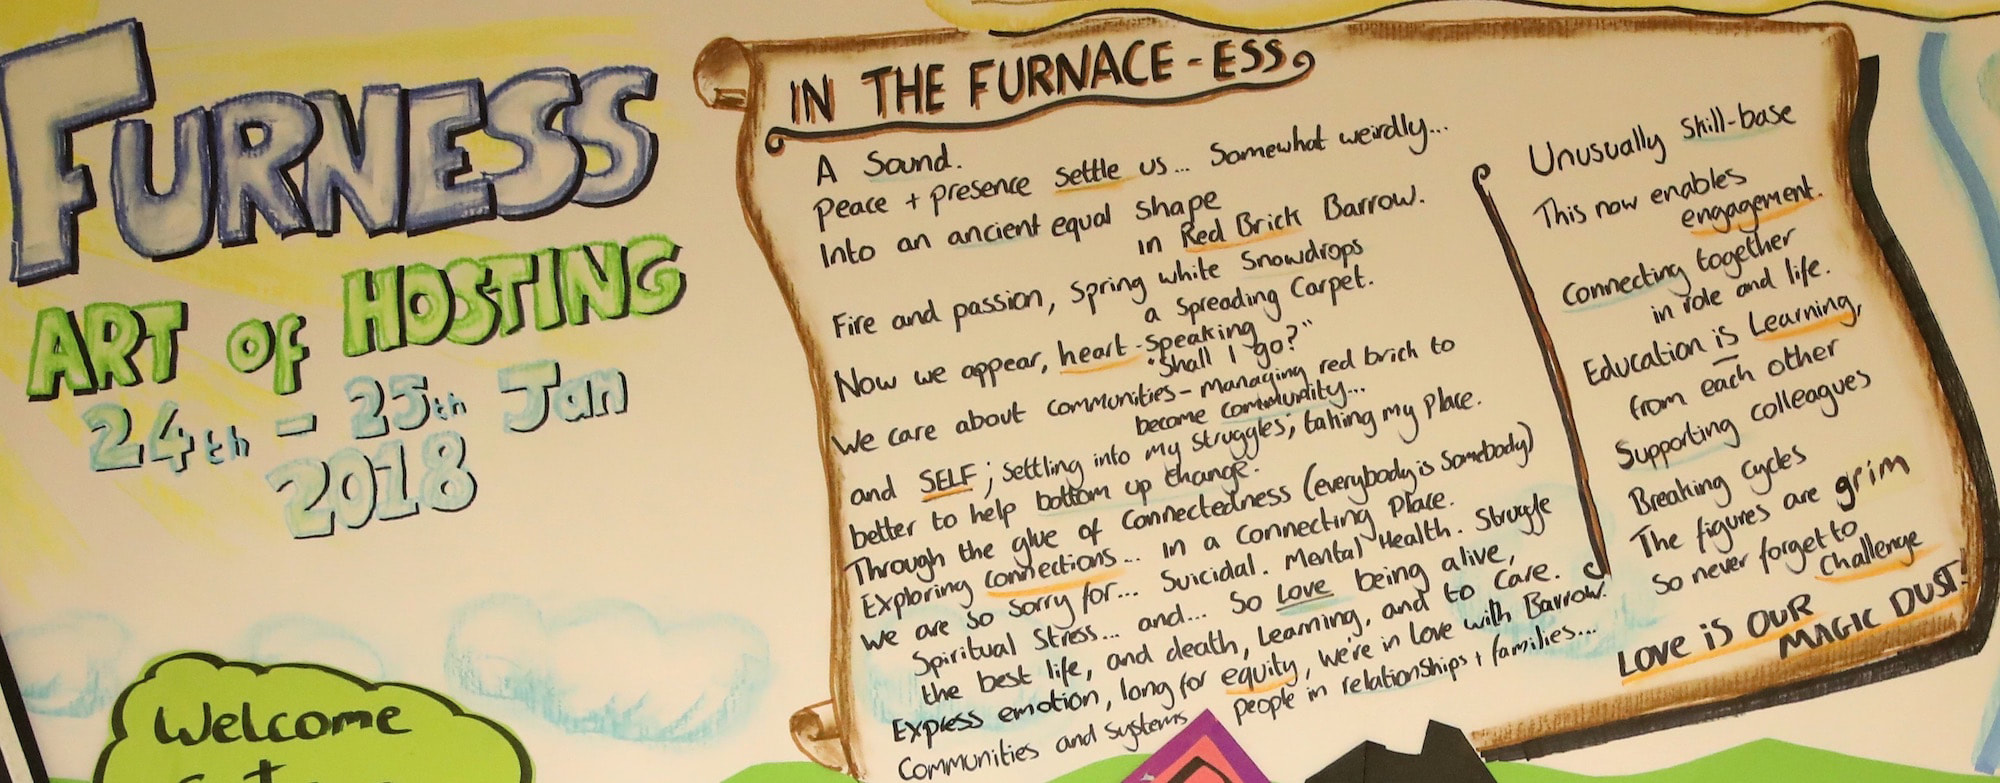 FURNESS
ART OF HOSTING
24th - 25th Jan
2018
Welcome
IN THE FURNACE - ESS
A Sound.
Peace + presence settle us... Somewhat weirdly...
Into an ancient equal shape
in Red Brick Barrow.
Fire and passion, Spring white Snowdrops
a Spreading Carpet.
Now we appear, heart-speaking
"Shall I go?"
We care about communities - managing red brich to
become community...
and SELF; settling into my struggles, taking my Place.
better to help bottom up change.
Through the glue of Connectedness (everybody is Somebody)
Exploring connections... in a Connecting Place.
We are so sorry for... Suicidal. Mental Health. Struggle
Spiritual Stress... and... So Love being alive,
the best life, and death, Learning, and to Care.
Express emotion, long for equity, We're in Love with Barrow.
Communities and Systems people in relationships + families...
Unusually Skill-base
This now enables
engagement.
Connecting together
in role and life.
Education is Learning,
from each other
Supporting colleagues
Breaking Cycles
The figures are grim
So never forget to
Challenge
LOVE iS OUR
MAGIC DUST!